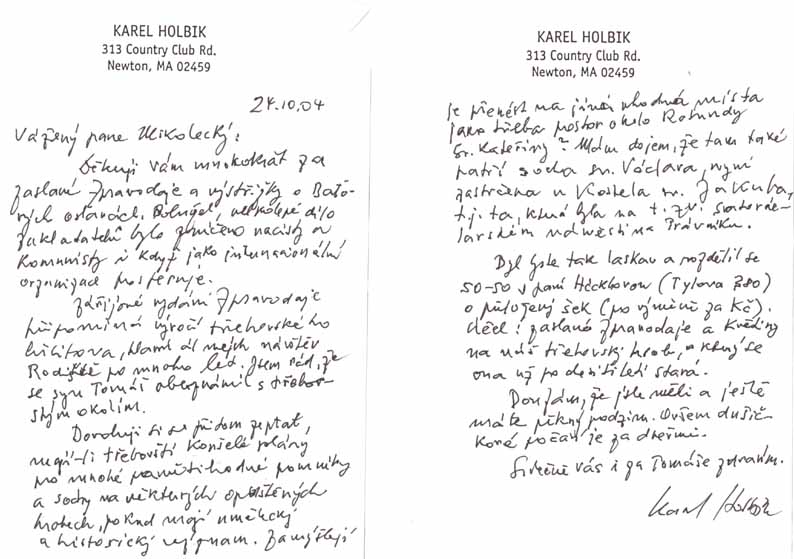 KAREL HOLBIK
313 Country Club Rd.
Newton, MA 02459
24.10.04
Vážený pane Mikolecký:
Děkuji Vám mnohokrát za
zaslání Zpravodaje a výstřižky o Baťo-
vých oslavách. Bohužel, velkolepé dílo
zakladatelů bylo zničeno nacisty a
komunisty i když jako internacionální
organizace prosperuje.
Zářijové vydání Zpravodaje
připomíná výročí třebovského
hřbitova, hlavní cíl mých návštěv
Rodiště po mnoho let. Jsem rád, že
se syn Tomáš obeznámil s třebov-
ským okolím.
Dovoluji si se přitom zeptat,
mají-li třebovští konšelé plány
pro mnohé pamětihodné pomníky
a sochy na některých opuštěných
hrobech, pokud mají umělecký
a historický význam. Zamýšlejí
KAREL HOLBIK
313 Country Club Rd.
Newton, MA 02459
je přenést na jiná vhodná místa
jako třeba prostor okolo Rotundy
Sv. Kateřiny? Mám dojem, že tam také
patří socha sv. Václava, nyní
zastrčena u Kostela sv. Jakuba,
t.j. ta, která byla na t. zv.
náměstí na Trávníku.
Byl byste tak laskav a rozdělil se
50-50 s paní (Tylova 280)
o přiložený šek (po výměně za Kč).
Účel: zaslaná Zpravodaje a Květiny
na náš třebovský hrob, o který se
ona už po desítiletí stará.
Doufám, že jste měli a ještě
máte pěkný podzim. Ovšem dušič-
kové počasí je za dveřmi.
Srdečně Vás i za Tomáše zdravím.
Karel Holbik